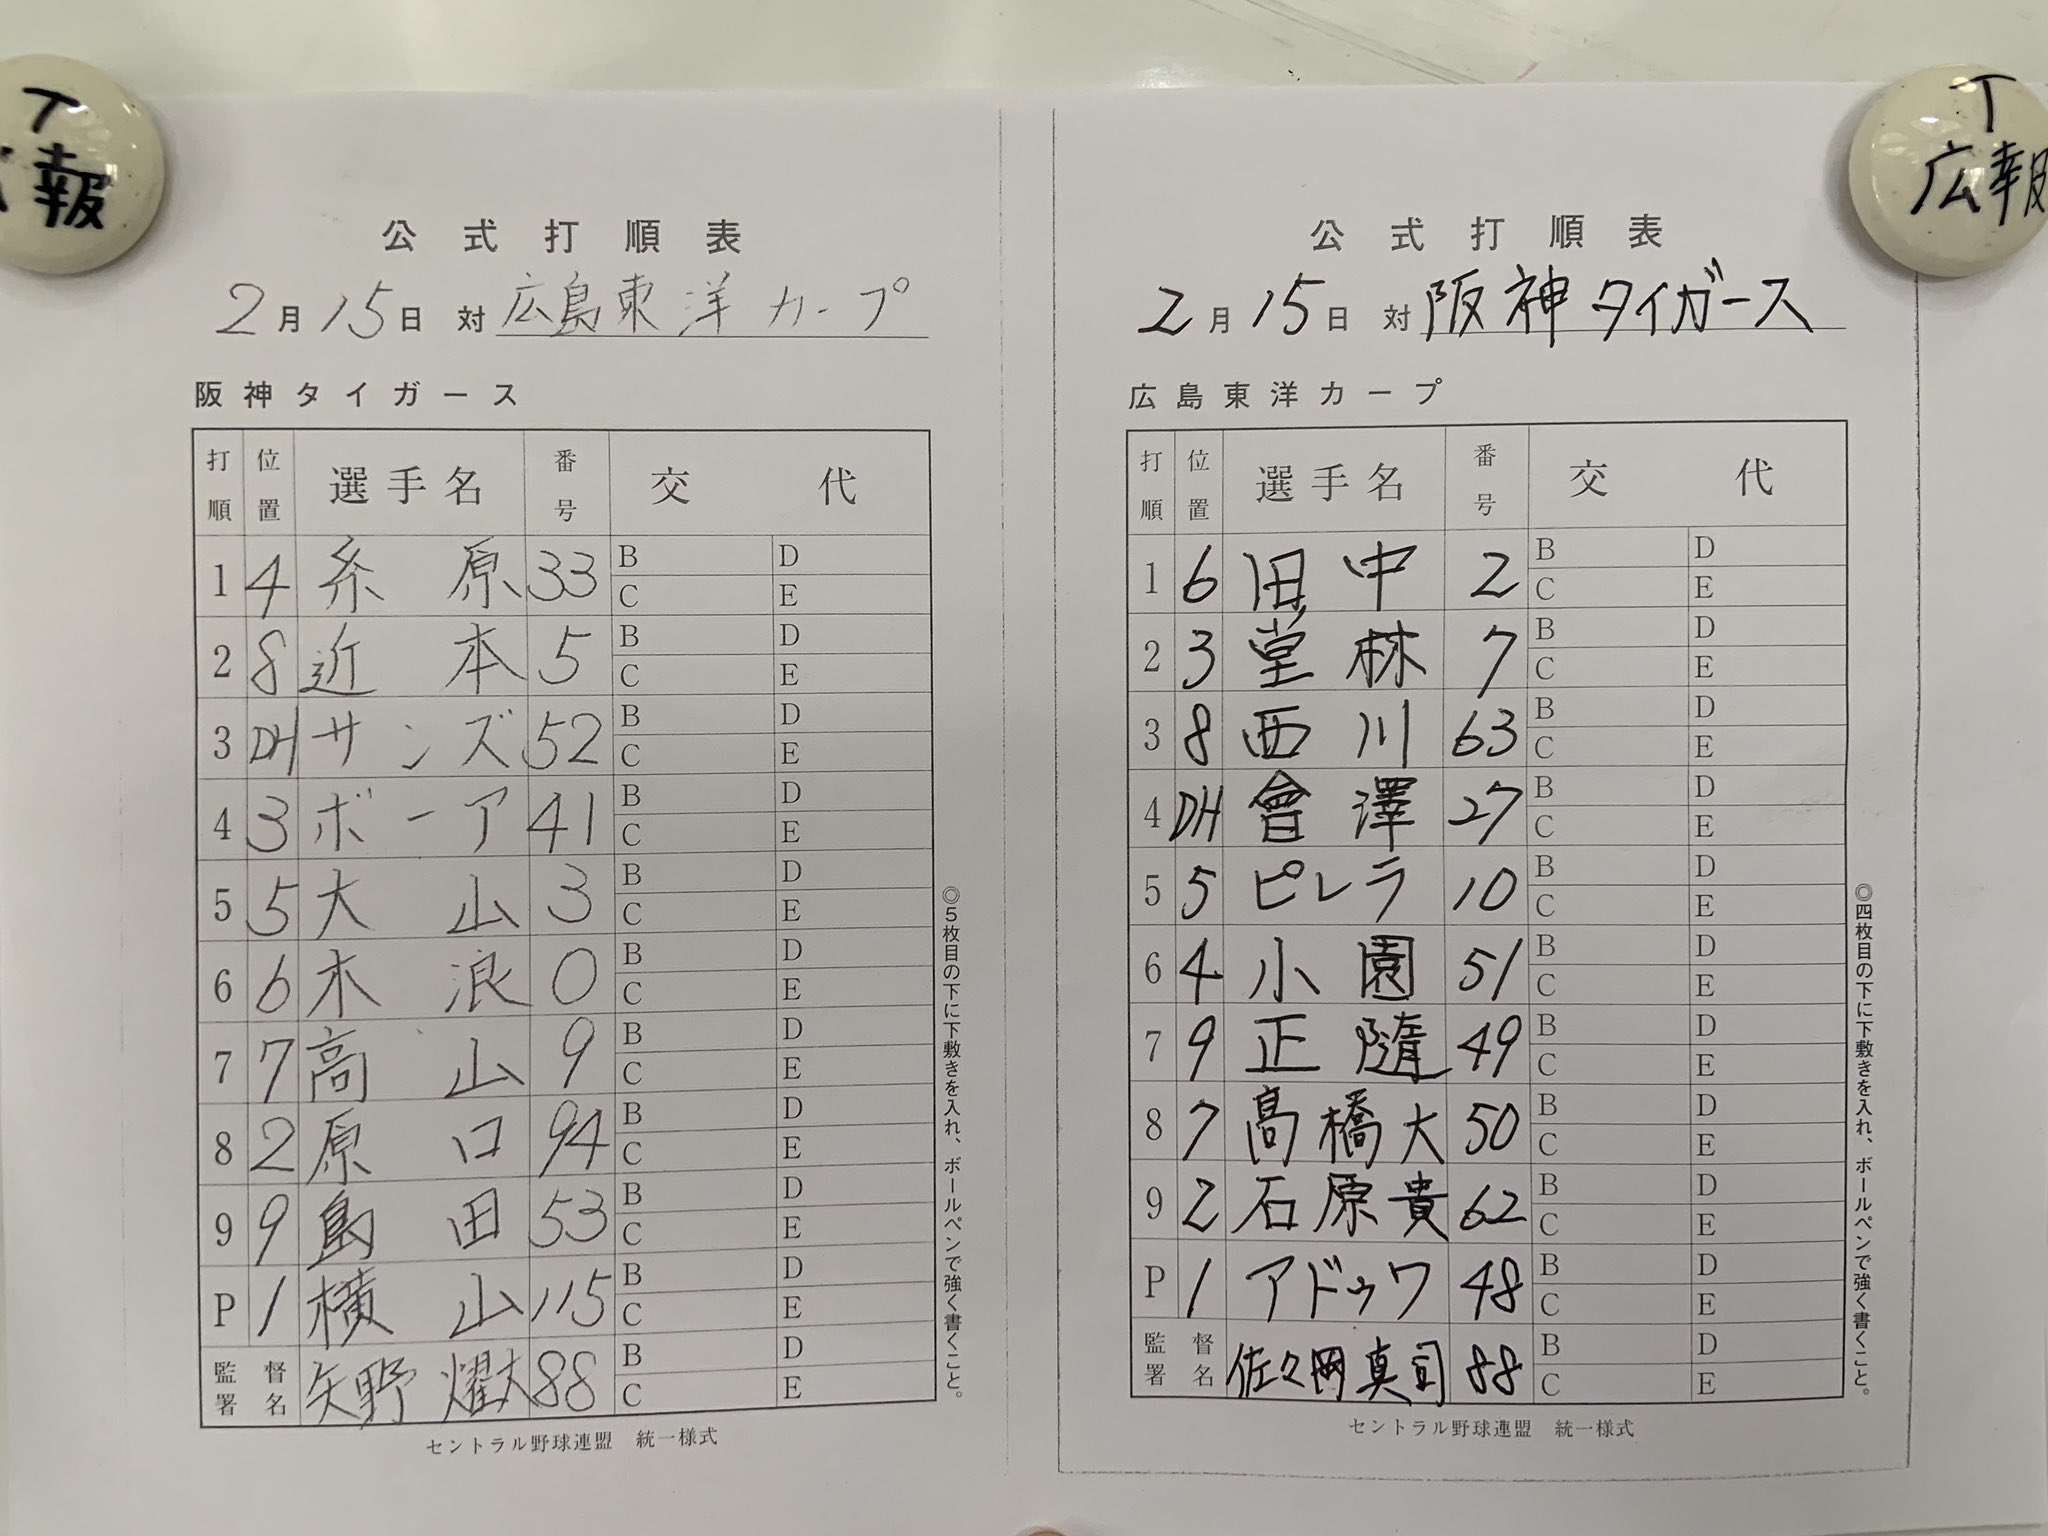 T
報
T
広報
公式打順表
2月15日 対 広島東洋カープ
阪神タイガース
打順 位置 選手名 番号 交代
1 4 糸原 33 B D C E
2 8 近本 5 B D C E
3 DH サンズ 52 B D C E
4 3 ボーア 41 B D C E
5 5 大山 3 B D C E
6 6 木浪 0 B D C E
7 7 高山 9 B D C E
8 2 原口 94 B D C E
9 9 島田 53 B D C E
P 1 横山 115 B D C E
監督署名 矢野燿大 88 B D C E
◎5枚目の下に下敷きを入れ、ボールペンで強く書くこと。
セントラル野球連盟 統一様式
公式打順表
2月15日 対 阪神タイガース
広島東洋カープ
打順 位置 選手名 番号 交代
1 6 田中 2 B D C E
2 3 堂林 7 B D C E
3 8 西川 63 B D C E
4 DH 會澤 27 B D C E
5 5 ピレラ 10 B D C E
6 4 小園 51 B D C E
7 9 正隨 49 B D C E
8 7 髙橋大 50 B D C E
9 2 石原貴 62 B D C E
P 1 アドゥワ 48 B D C E
監督署名 佐々岡真司 88 B D C E
◎四枚目の下に下敷きを入れ、ボールペンで強く書くこと。
セントラル野球連盟 統一様式